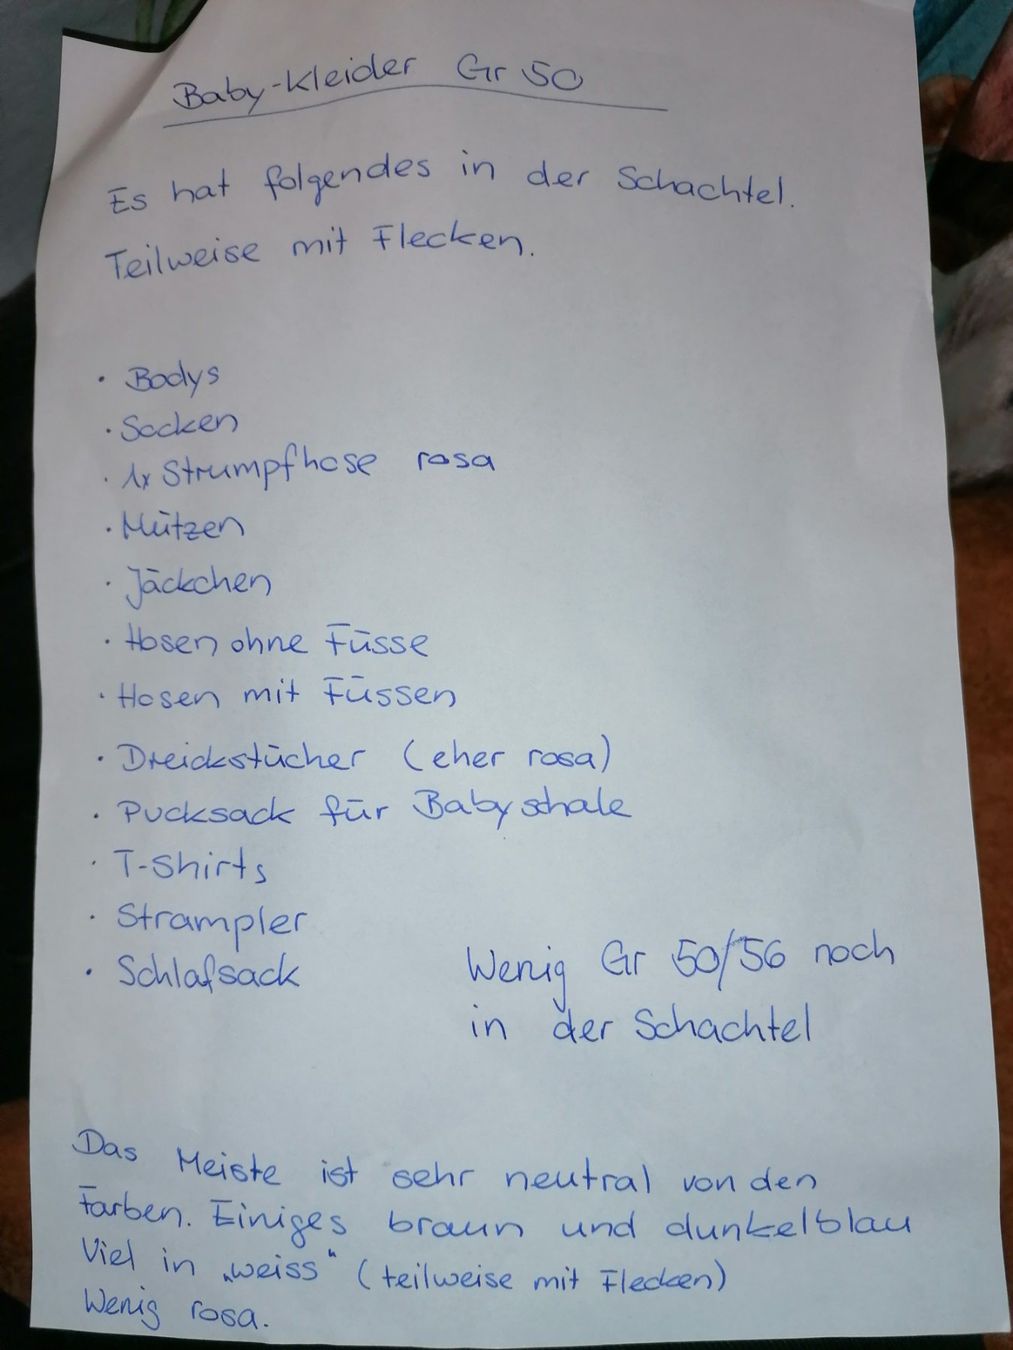 Baby-Kleider Gr 50
Es hat folgendes in der Schachtel.
Teilweise mit Flecken.
· Bodys
· Socken
· 1x Strumpfhose rosa
· Mützen
· Jäckchen
· Hosen ohne Füsse
· Hosen mit Füssen
· Dreickstücher (eher rosa)
· Pucksack für Babyschale
· T-Shirts
· Strampler
· Schlafsack
Wenig Gr 50/56 noch
in der Schachtel
Das Meiste ist sehr neutral von den
Farben. Einiges braun und dunkelblau
Viel in „weiss" (teilweise mit Flecken)
Wenig rosa.